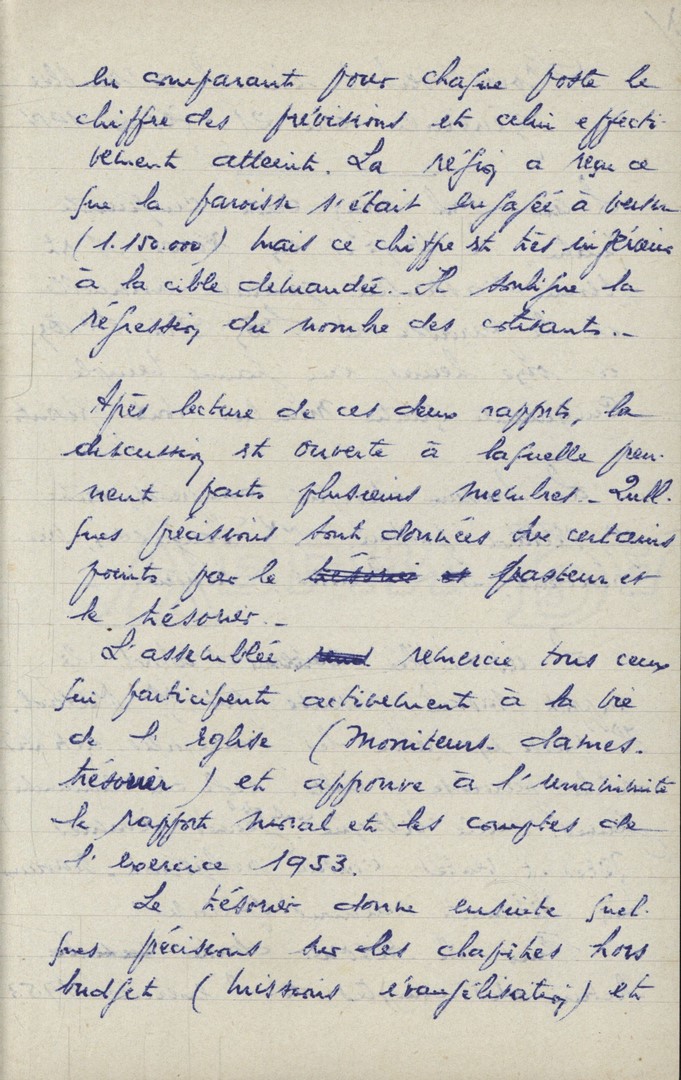 en comparant pour chaque poste le
chiffre des prévisions et celui effecti-
vement atteint. La région a reçu ce
que la paroisse s'était engagée à verser
(1.150.000) mais ce chiffre est très inférieur
à la cible demandée. Il souligne la
régression du nombre des cotisants.-
Après lecture de ces deux rapports, la
discussion est ouverte à laquelle pren-
nent part plusieurs membres. Quel-
ques précisions sont données sur certains
points par le trésorier et pasteur et
le trésorier.-
L'assemblée rend remercie tous ceux
qui participent activement à la vie
de l'église (Moniteurs. dames.
trésorier) et approuve à l'unanimité
le rapport moral et les comptes de
l'exercice 1953.
Le trésorier donne ensuite quel-
ques précisions sur les chapitres hors
budget (missions évangélisation) et